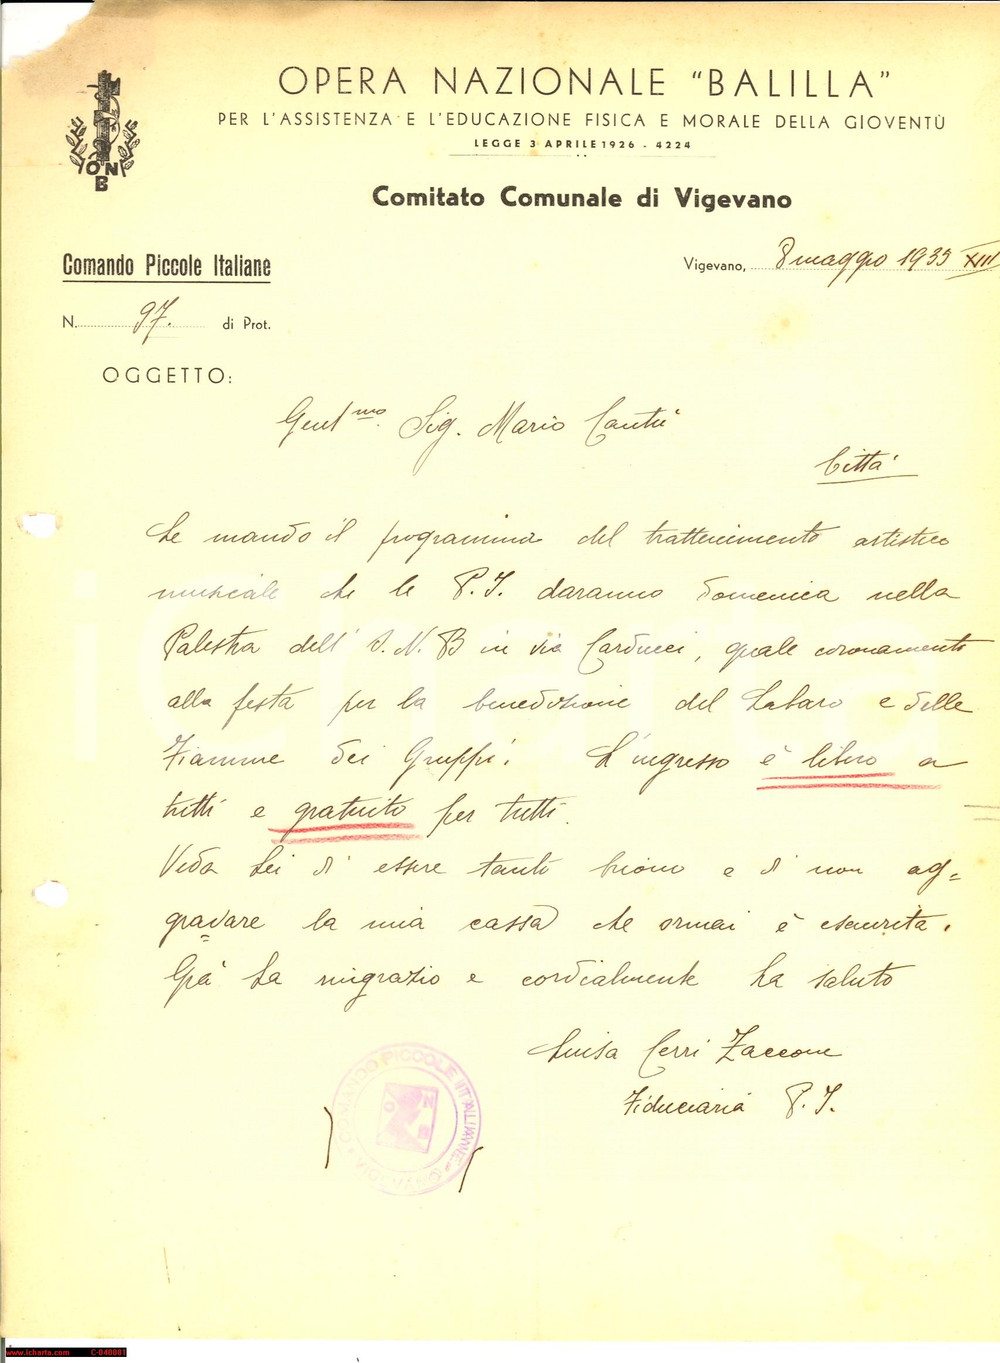 OPERA NAZIONALE "BALILLA"
PER L'ASSISTENZA E L'EDUCAZIONE FISICA E MORALE DELLA GIOVENTÙ
LEGGE 3 APRILE 1926 - 4224
ONB
Comitato Comunale di Vigevano
Comando Piccole Italiane
Vigevano, 8 maggio 1935 XIII
N. 97. di Prot.
OGGETTO:
Gent.mo Sig. Mario Cantù
Città
Le mando il programma del trattenimento artistico
musicale che le P.I. daranno domenica nella
Palestra dell'O.N.B in via Carducci, quale coronamento
alla festa per la benedizione del Labaro e delle
Fiamme dei Gruppi. L'ingresso è libero a
tutti e gratuito per tutti.
Veda Lei di essere tanto buono e di non ag=
gravare la mia cassa che ormai è esaurita.
Già La ringrazio e cordialmente La saluto
Luisa Cerri Zaccone
Fiduciaria P.I.
COMANDO PICCOLE ITALIANE
VIGEVANO
ONB
icharta
www.icharta.com C-040081